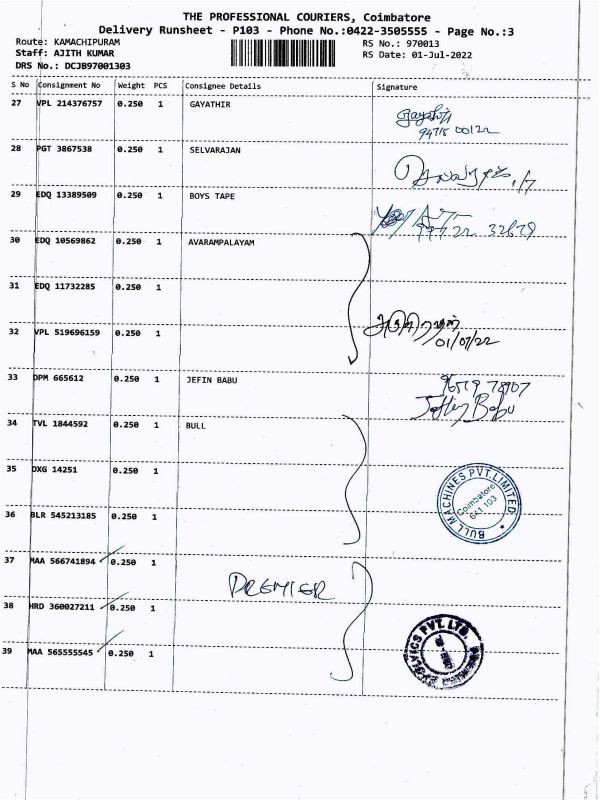 THE PROFESSIONAL COURIERS, Coimbatore
Delivery Runsheet - P103 - Phone No.:0422-3505555 - Page No.:3
Route: KAMACHIPURAM RS No.: 970013
Staff: AJITH KUMAR RS Date: 01-Jul-2022
DRS No.: DCJB97001303
S No Consignment No Weight PCS Consignee Details Signature
27 VPL 214376757 0.250 1 GAYATHIR
28 PGT 3867538 0.250 1 SELVARAJAN
29 EDQ 13389509 0.250 1 BOYS TAPE
30 EDQ 10569862 0.250 1 AVARAMPALAYAM
31 EDQ 11732285 0.250 1
32 VPL 519696159 0.250 1
01/07/22
33 DPM 665612 0.250 1 JEFIN BABU
Babu
34 TVL 1844592 0.250 1 BULL
35 DXG 14251 0.250 1
BULL MACHINES PVT.LIMITED
Coimbatore
641 103
36 BLR 545213185 0.250 1
37 MAA 566741894 0.250 1
PREMIER
38 HRD 360027211 0.250 1
39 MAA 565555545 0.250 1
PVT. LTD.